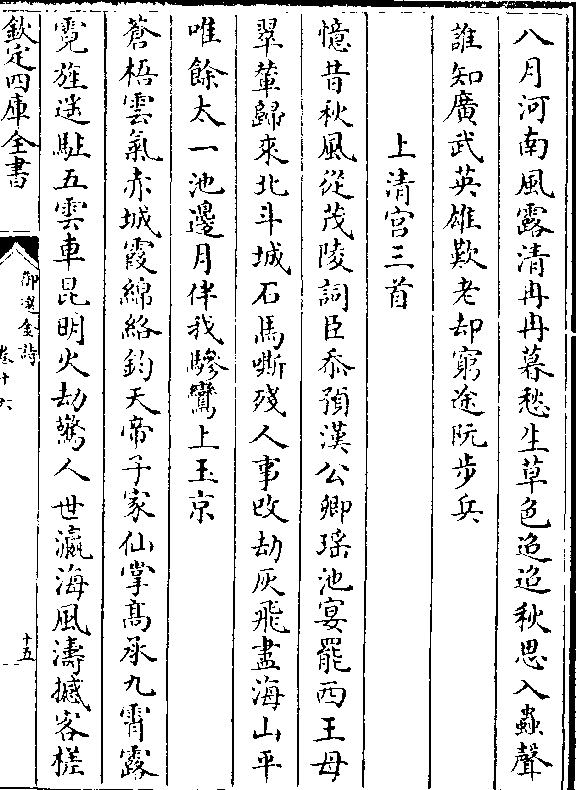 八月河南風露清冉冉暮愁生草色迢迢秋思入蟲聲
誰知廣武英雄歎老却窮途阮步兵
上清宫三首
憶昔秋風從茂陵詞臣忝預漢公卿瑤池宴罷西王母
翠輦歸來北斗城石馬嘶殘人事改劫灰飛盡海山平
唯餘太一池邊月伴我驂鸞上玉京
蒼梧雲氣赤城霞綿絡鈞天帝子家仙掌髙承九霄露
霓旌迷駐五雲車昆明火劫驚人世瀛海風濤撼客槎
欽定四庫全書
御選金詩
卷十六
十五